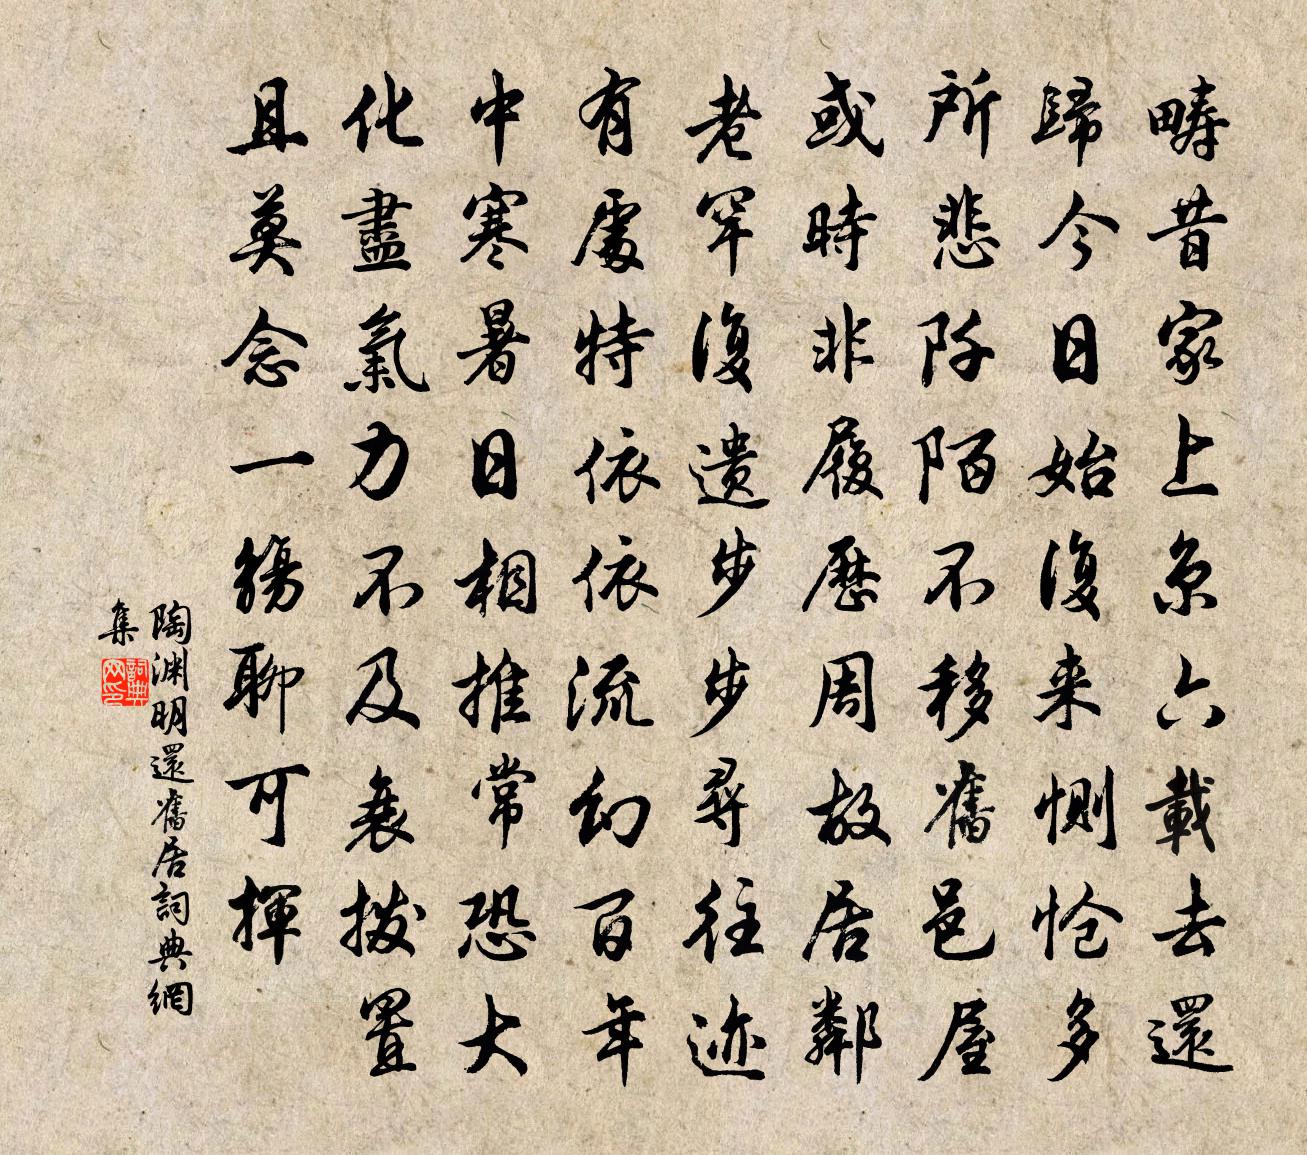 疇昔家上京六載去還
歸今日始復来惻怆多
所悲阡陌不移舊邑屋
或時非履歷周故居鄰
老罕復遺步步尋往迹
有處特依依流幻百年
中寒暑日相推常恐大
化盡氣力不及衰撥置
且莫念一觴聊可揮
陶渊明還舊居詞典網
集
詞典网印